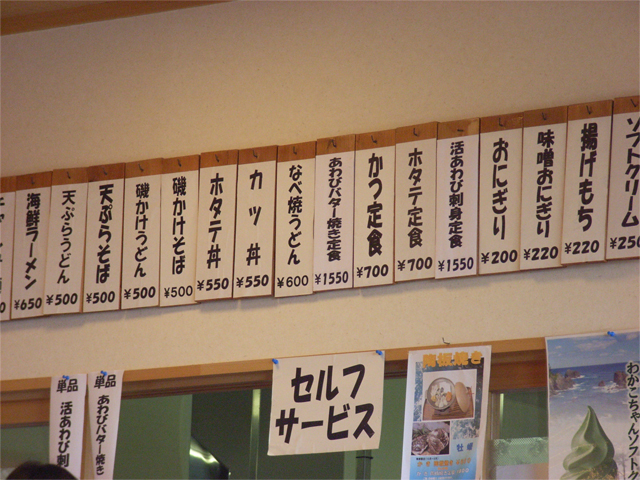 ソフトクリーム
¥250
揚げもち
¥220
味噌おにぎり
¥220
おにぎり
¥200
活あわび刺身定食
¥1550
ホタテ定食
¥700
かつ定食
¥700
あわびバター焼き定食
¥1550
なべ焼うどん
¥600
カツ丼
¥550
ホタテ丼
¥550
磯かけそば
¥500
磯かけうどん
¥500
天ぷらそば
¥500
天ぷらうどん
¥500
海鮮ラーメン
¥650
単品
活あわび刺
単品
あわびバター焼き
セルフ
サービス
牡蠣
わかこちゃんソフト